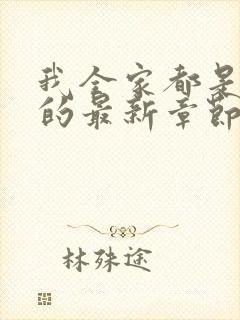 我全家都是
的最新章节
林殊途